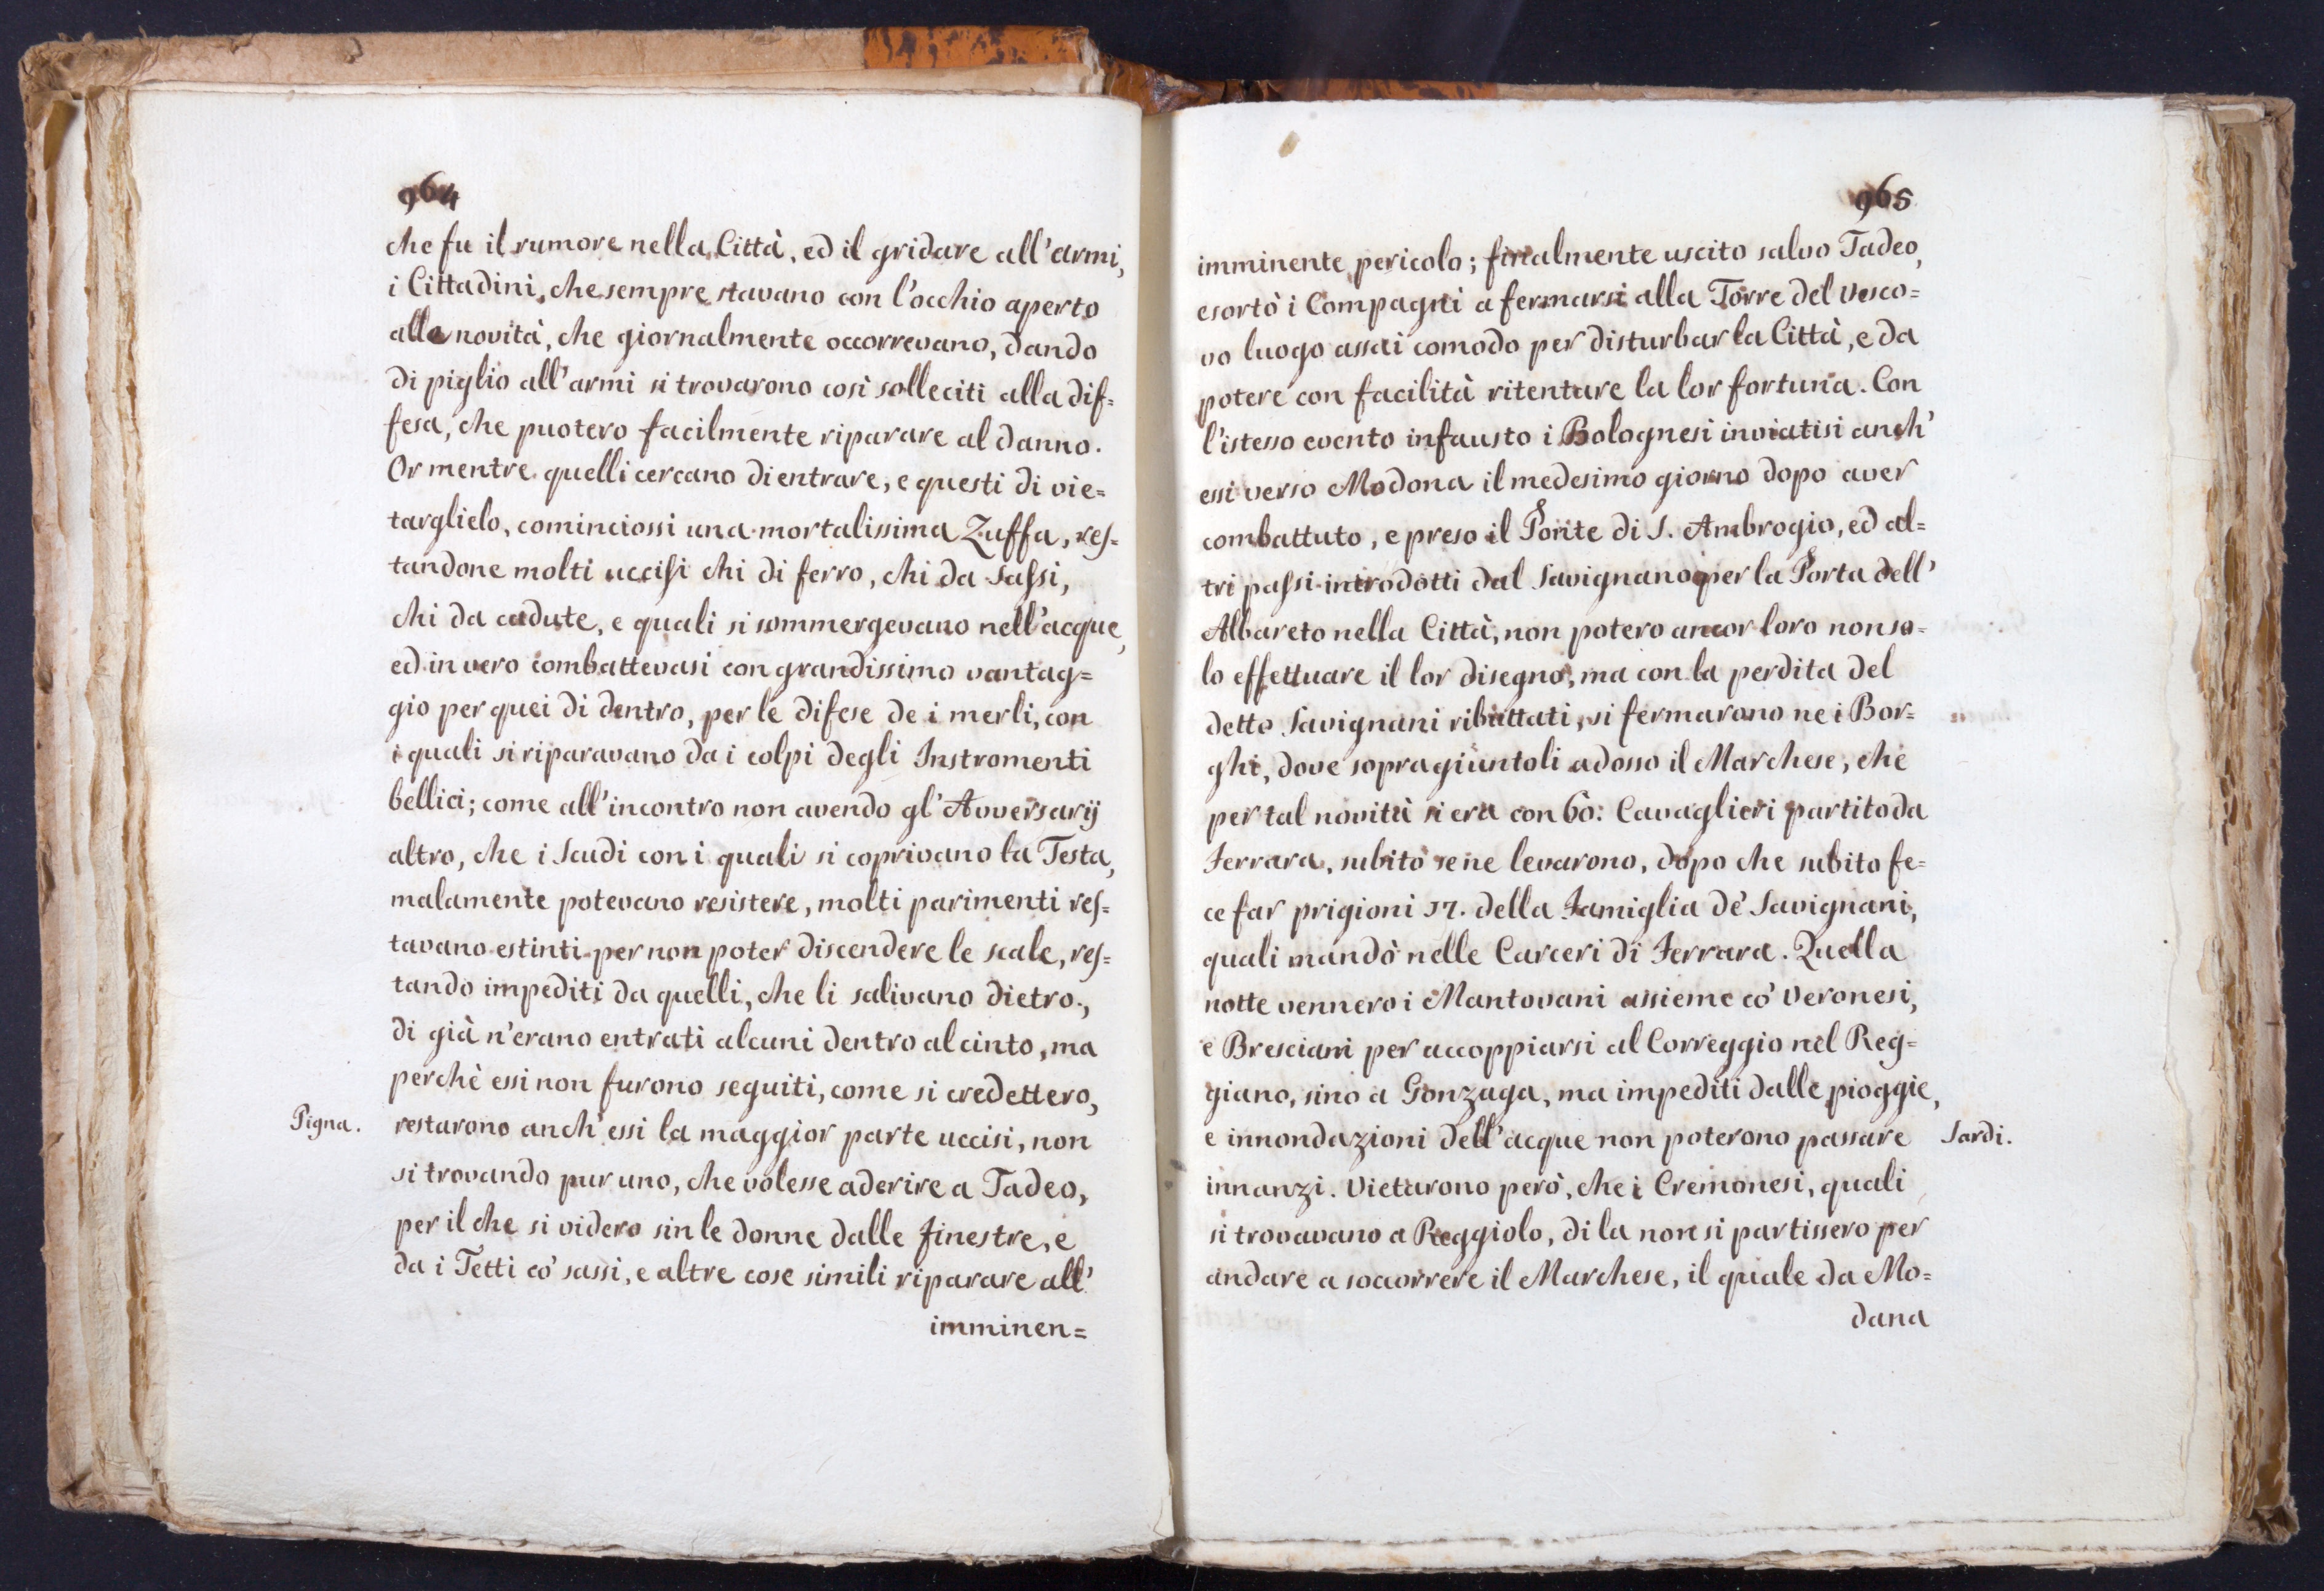 964
che fu il rumore nella Città, ed il gridare all'armi,
i Cittadini, che sempre stavano con l'occhio aperto
alle novità, che giornalmente occorrevano, dando
di piglio all'armi si trovarono così solleciti alla dif=
fesa, che puotero facilmente riparare al danno.
Or mentre quelli cercano di entrare, e questi di vie=
targlielo, cominciossi una mortalissima Zuffa, res=
tandone molti uccisi chi di ferro, chi da Sassi,
chi da cadute, e quali si sommergevano nell'acque,
ed in vero combattevasi con grandissimo vantag=
gio per quei di dentro, per le difese de i merli, con
i quali si riparavano da i colpi degli Instromenti
bellici; come all'incontro non avendo gl'Avversarij
altro, che i Scudi con i quali si coprivano la Testa,
malamente potevano resistere, molti parimenti res=
tavano estinti per non poter discendere le scale, res=
tando impediti da quelli, che li salivano dietro.,
di già n'erano entrati alcuni dentro al cinto, ma
perchè essi non furono seguiti, come si credettero,
Pigna. restarono anch'essi la maggior parte uccisi, non
si trovando pur uno, che volesse aderire a Tadeo,
per il che si videro sin le donne dalle finestre, e
da i Tetti co' sassi, e altre cose simili riparare all'
imminen=
965
imminente pericolo; finalmente uscito salvo Tadeo,
esortò i Compagni a fermarsi alla Torre del Vesco=
vo luogo assai comodo per disturbar la Città, e da
potere con facilità ritentare la lor fortuna. Con
l'istesso evento infausto i Bolognesi inviatisi anch'
essi verso Modona il medesimo giorno dopo aver
combattuto, e preso il Ponte di S. Ambrogio, ed al=
tri passi introdotti dal Savignano per la Porta dell'
Albareto nella Città, non potero ancor loro non so=
lo effettuare il lor disegno, ma con la perdita del
detto Savignani ributtati, si fermarono ne i Bor=
ghi, dove sopragiuntoli adosso il Marchese, che
per tal novità si era con 60: Cavaglieri partito da
Ferrara, subito se ne levarono, dopo che subito fe=
ce far prigioni 17. della Famiglia de' Savignani,
quali mandò nelle Carceri di Ferrara. Quella
notte vennero i Mantovani assieme co' Veronesi,
e Bresciani per accoppiarsi al Correggio nel Reg=
giano, sino a Gonzaga, ma impediti dalle pioggie,
e innondazioni dell'acque non poterono passare Sardi.
innanzi. Vietarono però, che i Cremonesi, quali
si trovavano a Reggiolo, di la non si partissero per
andare a soccorrere il Marchese, il quale da Mo=
dana